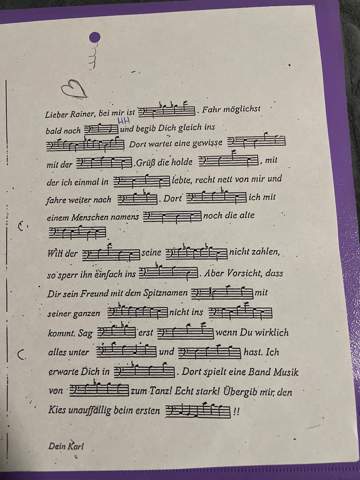 Lieber Rainer, bei mir ist . Fahr möglichst
HH
bald nach und begib Dich gleich ins
Dort wartet eine gewisse
mit der . Grüß die holde , mit
der ich einmal in lebte, recht nett von mir und
fahre weiter nach . Dort ich mit
einem Menschen namens noch die alte
Will der seine nicht zahlen,
so sperr ihn einfach ins . Aber Vorsicht, dass
Dir sein Freund mit dem Spitznamen mit
seiner ganzen nicht ins
kommt. Sag erst wenn Du wirklich
alles unter und hast. Ich
erwarte Dich in . Dort spielt eine Band Musik
von zum Tanz! Echt stark! Übergib mir, den
Kies unauffällig beim ersten !!
Dein Karl